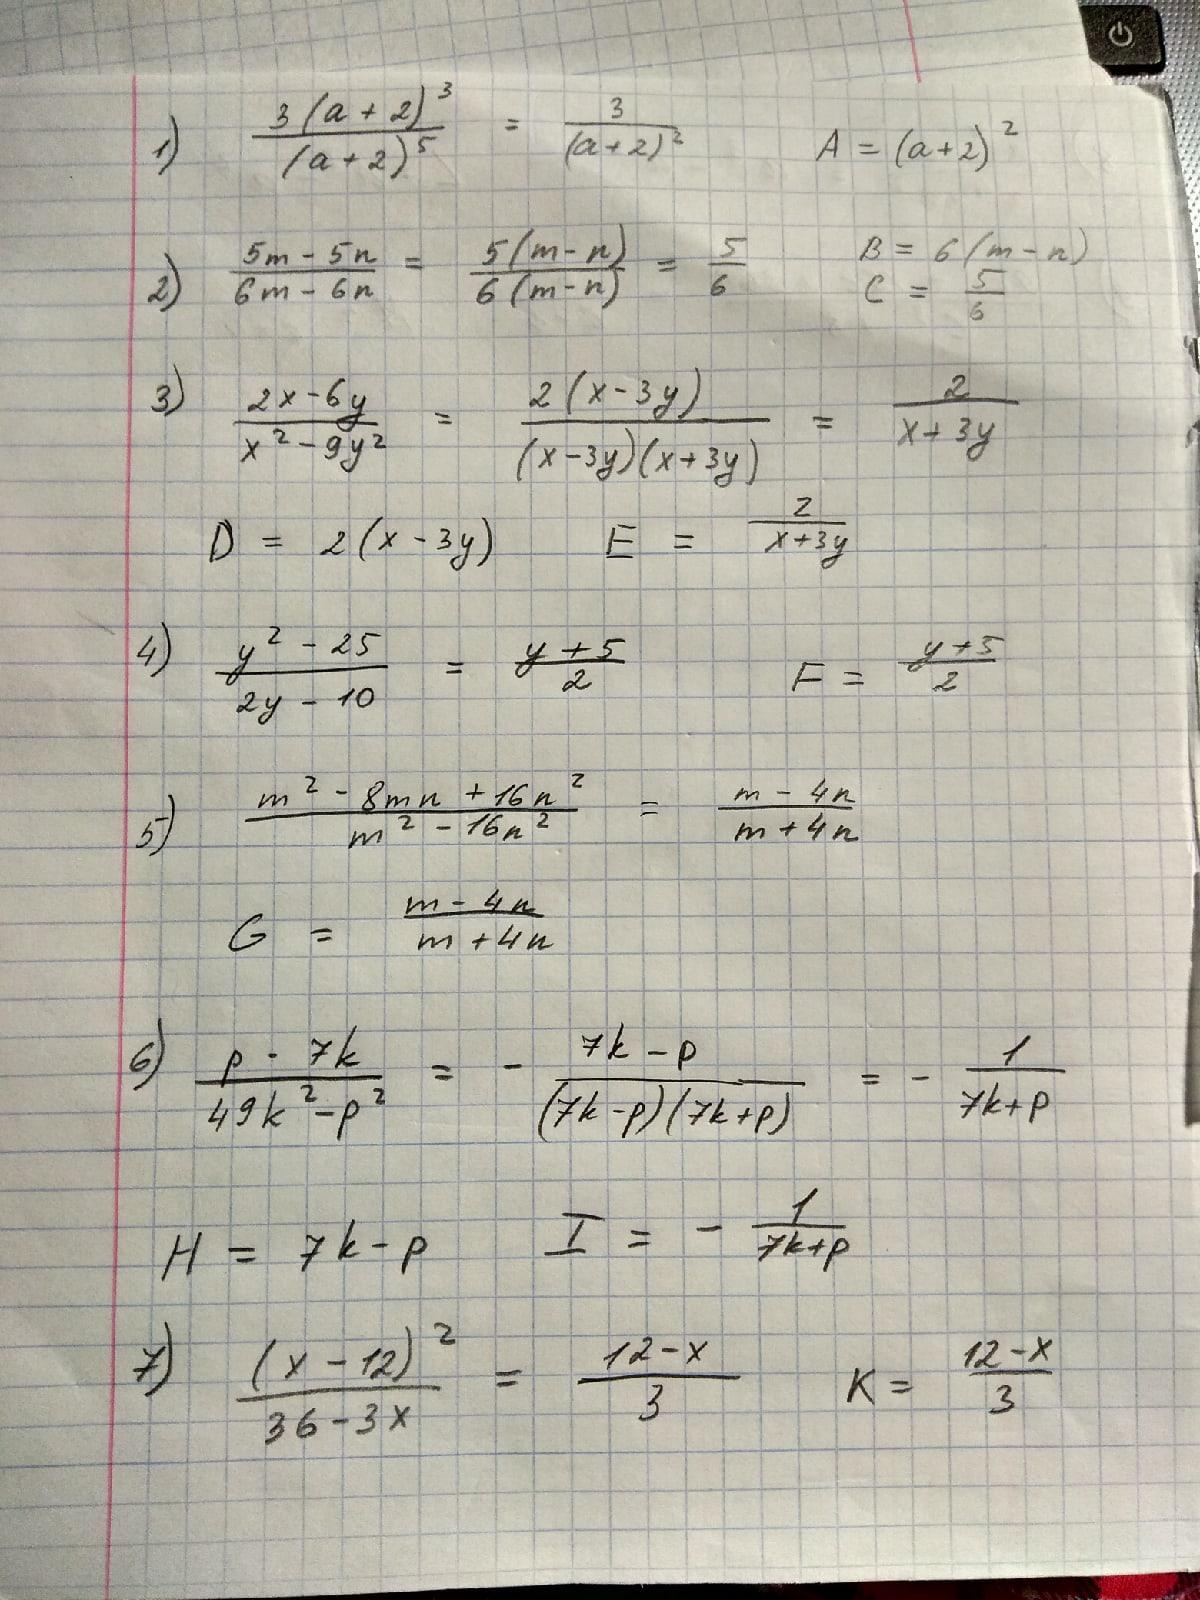 1) 3(a+2)³/(a+2)⁵ = 3/(a+2)² A = (a+2)²
2) (5m-5n)/(6m-6n) = 5(m-n)/6(m-n) = 5/6 B = 6(m-n)
C = 5/6
3) (2x-6y)/(x²-9y²) = 2(x-3y)/(x-3y)(x+3y) = 2/(x+3y)
D = 2(x-3y) E = 2/(x+3y)
4) (y²-25)/(2y-10) = (y+5)/2 F = (y+5)/2
5) (m²-8mn+16n²)/(m²-16n²) = (m-4n)/(m+4n)
G = (m-4n)/(m+4n)
6) (p-7k)/(49k²-p²) = -(7k-p)/(7k-p)(7k+p) = -1/(7k+p)
H = 7k-p I = -1/(7k+p)
7) (x-12)²/(36-3x) = (12-x)/3 K = (12-x)/3